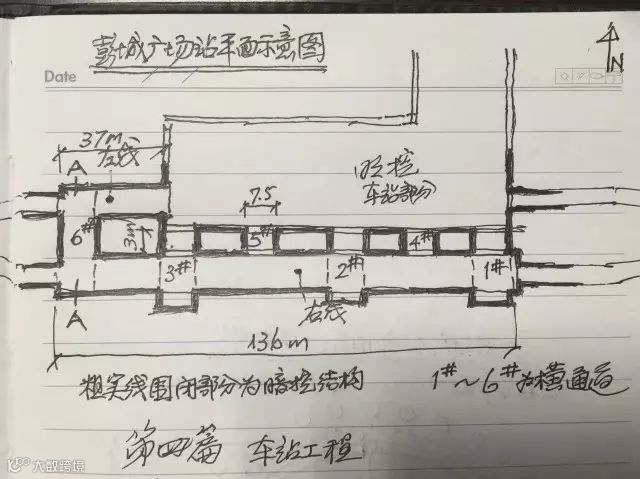 彭城广场站平面示意图
N
Date
37m
左线
A
明挖
车站部分
7.5
6#
3m
5#
4#
3#
2#
1#
A
右线
136m
粗实线围闭部分为暗挖结构
1#~6#为横通道
第四篇 车站工程
大数跨境